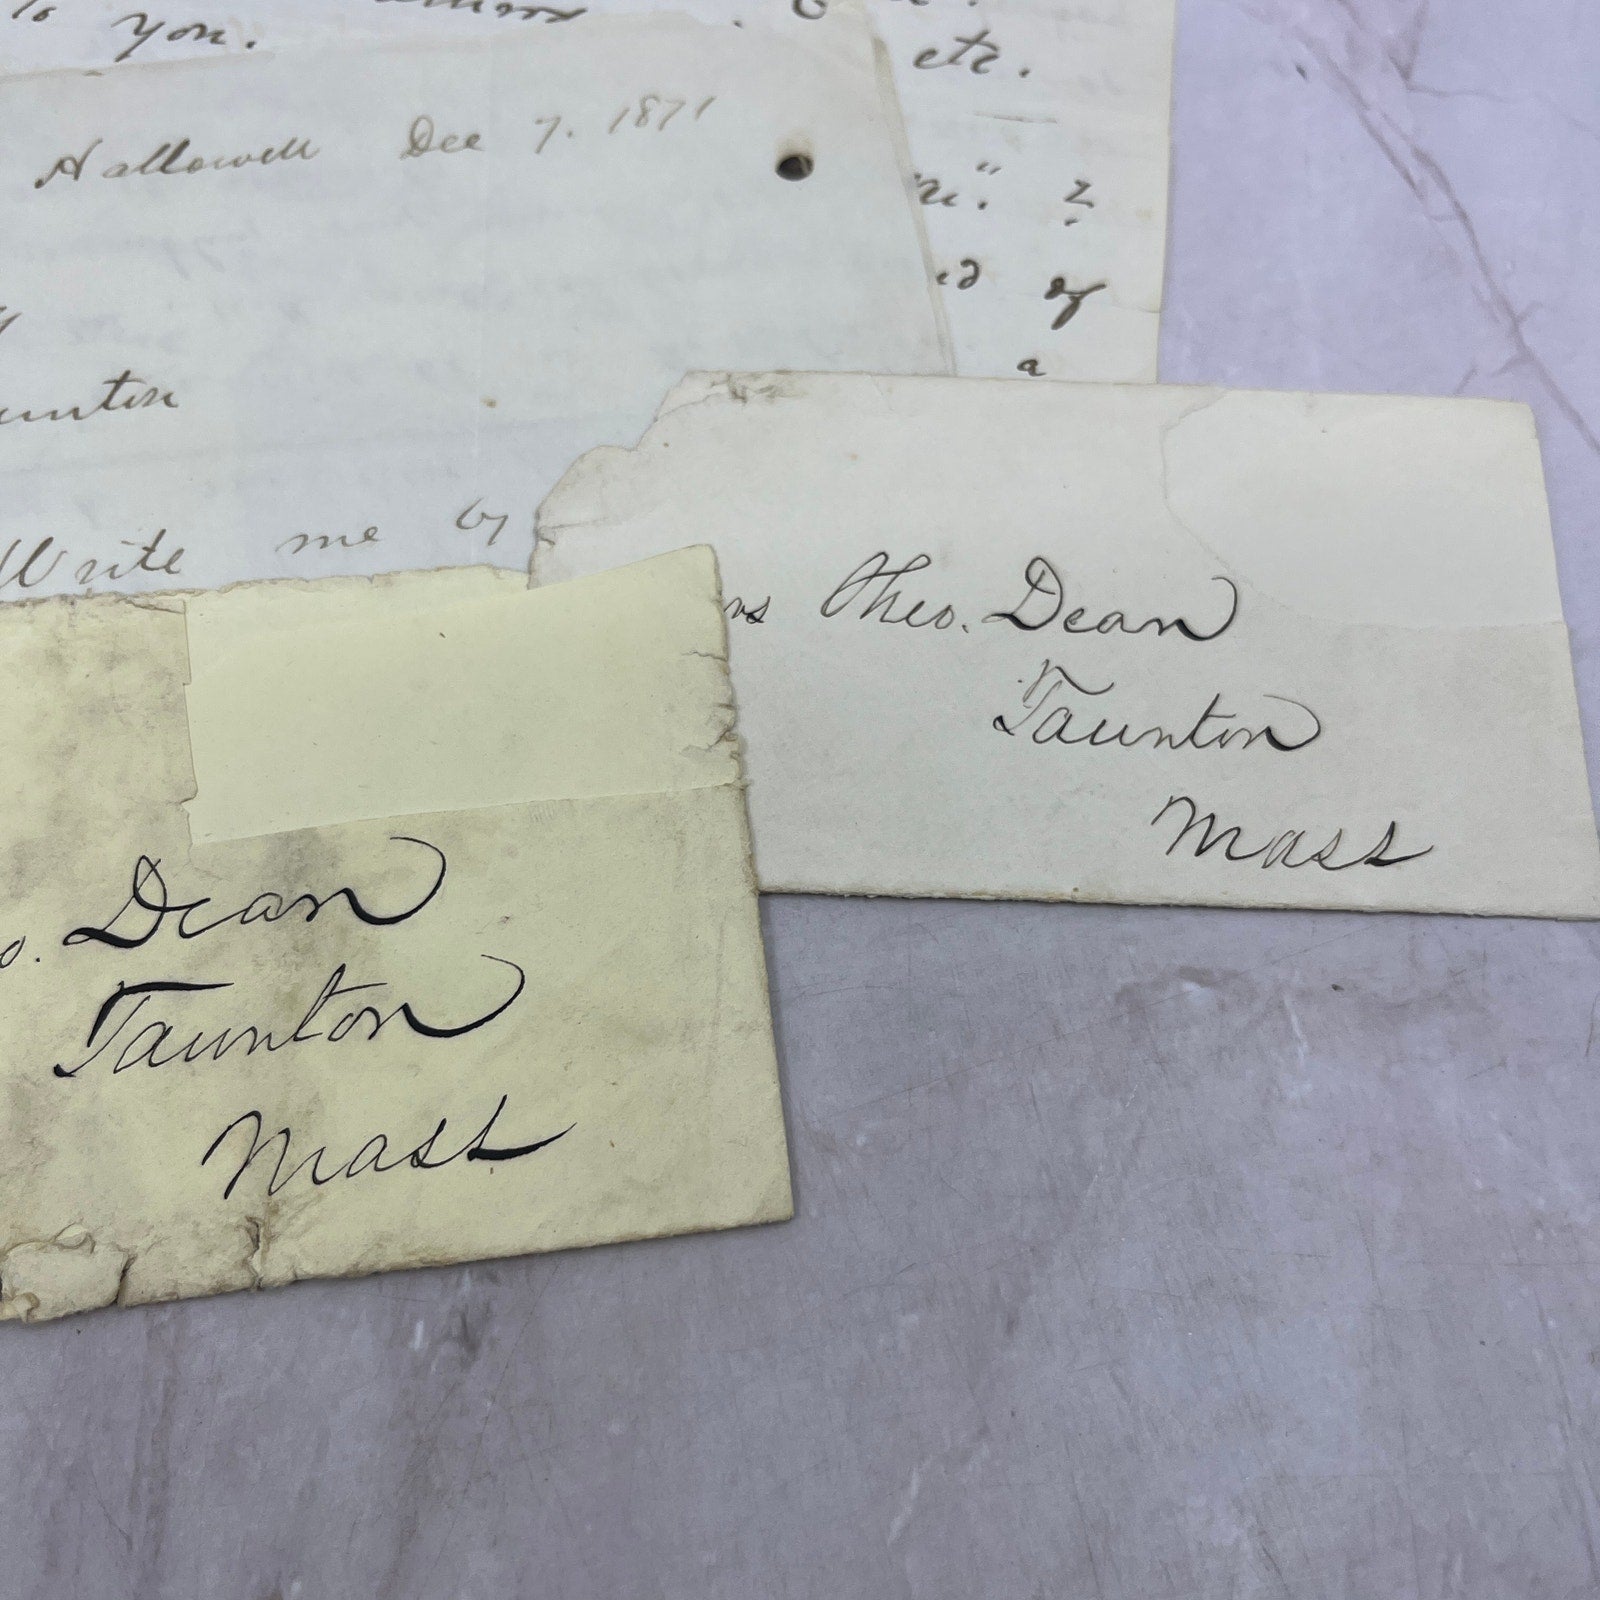 to you.
etc.
Hallowell Dec 7. 1871
?
of
a
unton
Write me by
Theo. Dean
Taunton
Mass
o. Dean
Taunton
Mass